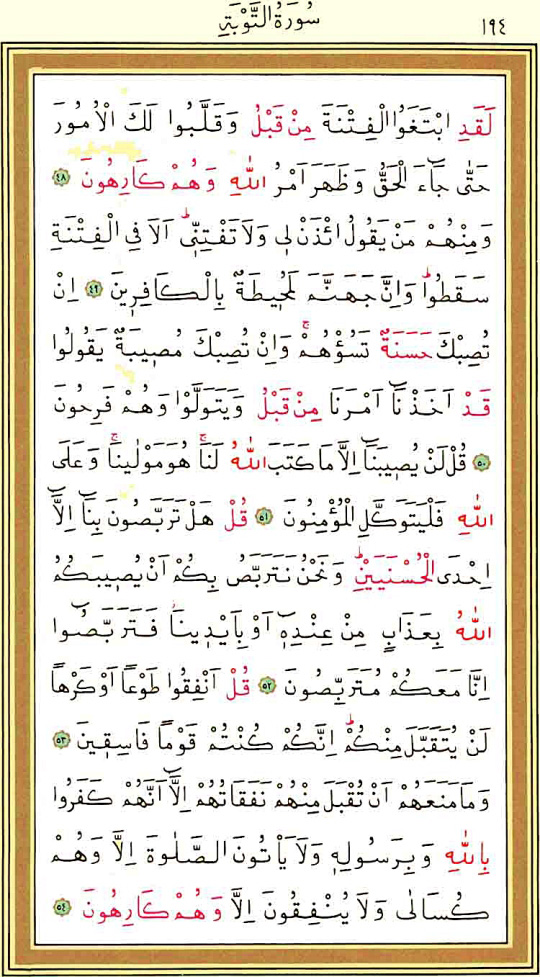 سُورَةُ التَّوْبَةِ ١٩٤
لَقَدِ ابْتَغَوُا الْفِتْنَةَ مِنْ قَبْلُ وَقَلَّبُوا لَكَ الْاُمُورَ
حَتّٰى جَٓاءَ الْحَقُّ وَظَهَرَ اَمْرُ اللّٰهِ وَهُمْ كَارِهُونَ ﴿٤٨﴾
وَمِنْهُمْ مَنْ يَقُولُ ائْذَنْ لٖى وَلَا تَفْتِنّٖىؕ اَلَا فِى الْفِتْنَةِ
سَقَطُواؕ وَاِنَّ جَهَنَّمَ لَمُحٖيطَةٌ بِالْكَافِرٖينَ ﴿٤٩﴾ اِنْ
تُصِبْكَ حَسَنَةٌ تَسُؤْهُمْۚ وَاِنْ تُصِبْكَ مُصٖيبَةٌ يَقُولُوا
قَدْ اَخَذْنَٓا اَمْرَنَا مِنْ قَبْلُ وَيَتَوَلَّوْا وَهُمْ فَرِحُونَ
﴿٥٠﴾ قُلْ لَنْ يُصٖيبَنَٓا اِلَّا مَا كَتَبَ اللّٰهُ لَنَاۚ هُوَ مَوْلٰينَاۚ وَعَلَى
اللّٰهِ فَلْيَتَوَكَّلِ الْمُؤْمِنُونَ ﴿٥١﴾ قُلْ هَلْ تَرَبَّصُونَ بِنَٓا اِلَّٓا
اِحْدَى الْحُسْنَيَيْنِؕ وَنَحْنُ نَتَرَبَّصُ بِكُمْ اَنْ يُصٖيبَكُمُ
اللّٰهُ بِعَذَابٍ مِنْ عِنْدِهٖٓ اَوْ بِاَيْدٖينَاؗ فَتَرَبَّصُٓوا
اِنَّا مَعَكُمْ مُتَرَبِّصُونَ ﴿٥٢﴾ قُلْ اَنْفِقُوا طَوْعاً اَوْ كَرْهاً
لَنْ يُتَقَبَّلَ مِنْكُمْؕ اِنَّكُمْ كُنْتُمْ قَوْماً فَاسِقٖينَ ﴿٥٣﴾
وَمَا مَنَعَهُمْ اَنْ تُقْبَلَ مِنْهُمْ نَفَقَاتُهُمْ اِلَّٓا اَنَّهُمْ كَفَرُوا
بِاللّٰهِ وَبِرَسُولِهٖ وَلَا يَأْتُونَ الصَّلٰوةَ اِلَّا وَهُمْ
كُسَالٰى وَلَا يُنْفِقُونَ اِلَّا وَهُمْ كَارِهُونَ ﴿٥٤﴾